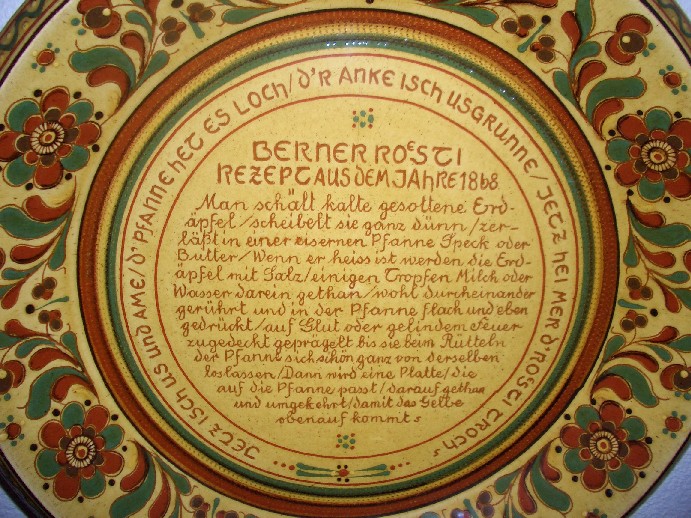 JETZ ISCH US UND AME/D'PFANNE HET ES LOCH/D'R ANKE ISCH USGRUNNE/JETZ HEI MER D'RÖSTI TROCHs
BERNER ROESTI
REZEPT AUS DEM JAHRE 1868.
Man schält kalte gesottene Erd-
äpfel/scheibelt sie ganz dünn/zer-
läßt in einer eisernen Pfanne Speck oder
Butter/Wenn er heiss ist werden die Erd-
äpfel mit Salz/einigen Tropfen Milch oder
Wasser darein gethan/wohl durcheinander
gerührt und in der Pfanne flach und eben
gedrückt/auf Glut oder gelindem Feuer
zugedeckt geprägelt bis sie beim Rütteln
der Pfanne sich schön ganz von derselben
loslassen/Dann wird eine Platte/die
auf die Pfanne passt/darauf gethan
und umgekehrt/damit das Gelbe
obenauf kommt.